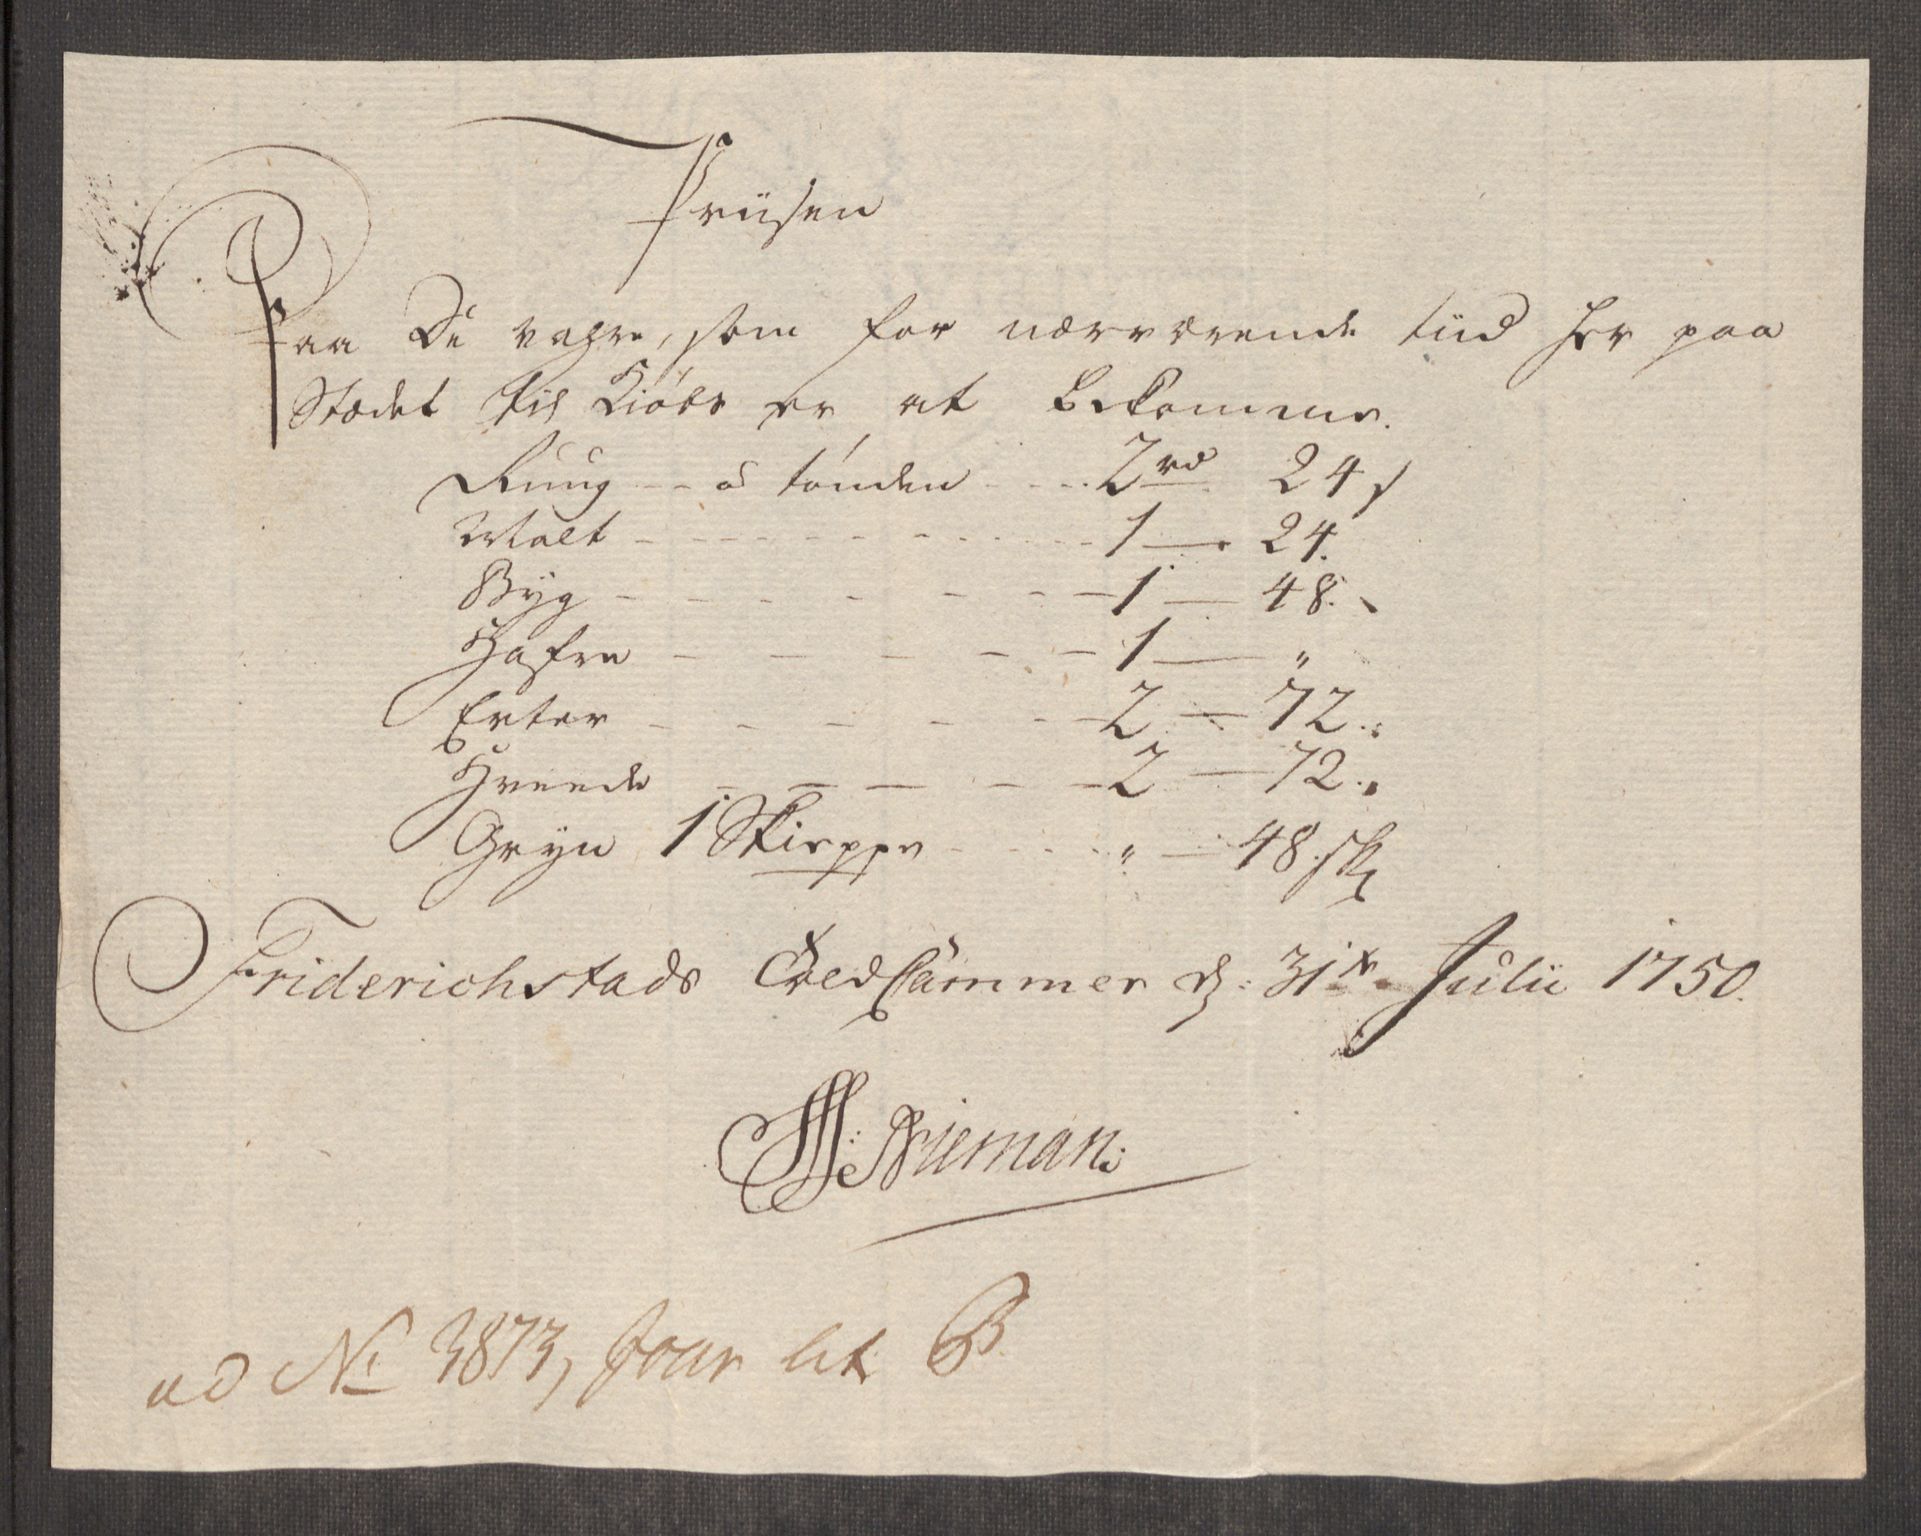 Priisen
Paa De vahre, som for nærværende tiid her paa
Stædet til Kiøbs er at bekomme.
Ruug - - a tønden - - - 2 rd 24 s
Malt - - - - - - 1 — 24.
Byg - - - - - - 1 — 48.
Hafre - - - - - 1 — "
Erter - - - - - 2 — 72.
Hveede - - - - - 2 — 72.
Gryn 1 Skieppe - - - - " — 48 sk
Friderichstads Toldkammer d: 31te Julii 1750.
Nieman:
ad No 3873, Jour lit B